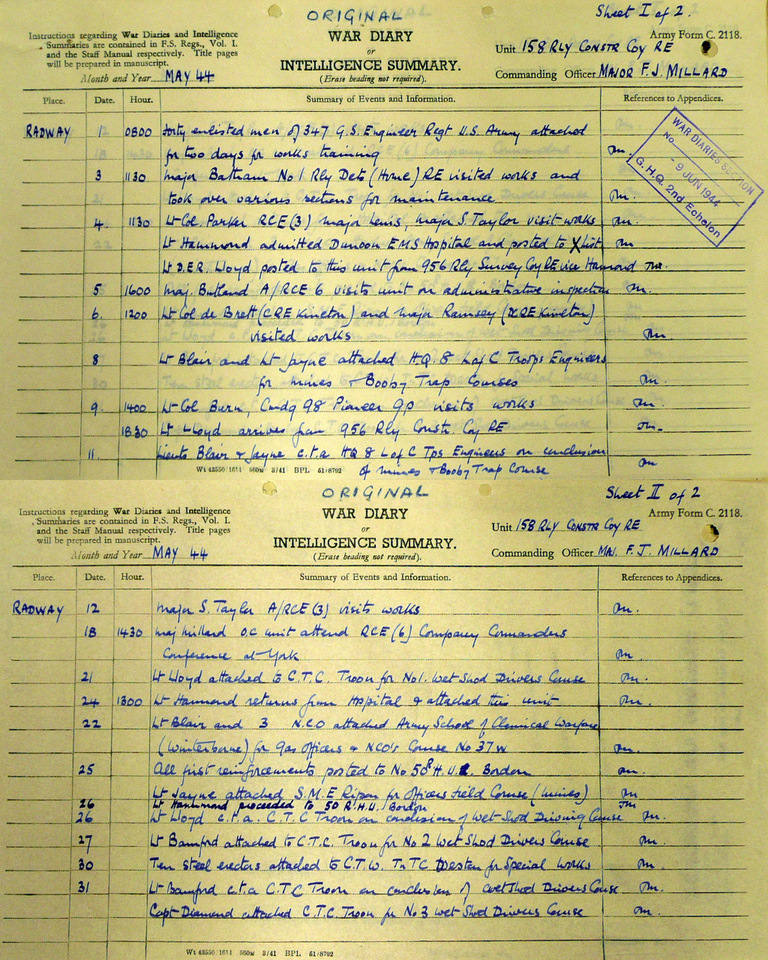 ORIGINAL
Sheet I of 2.
Instructions regarding War Diaries and Intelligence
Summaries are contained in F.S. Regs., Vol. I.
and the Staff Manual respectively. Title pages
will be prepared in manuscript.
WAR DIARY
or
INTELLIGENCE SUMMARY.
(Erase heading not required).
Army Form C. 2118.
Unit 158 RLY CONSTR COY RE
Month and Year MAY 44
Commanding Officer MAJOR F.J. MILLARD
Place. Date. Hour. Summary of Events and Information. References to Appendices.
RADWAY 1 0800 Forty enlisted men of 347 G.S. Engineer Regt U.S. Army attached
for two days for works training
3 1130 Major Batham No 1 Rly Det (Home) RE visited works and
took over various sections for maintenance
4. 1130 Lt Col. Parker RCE(3) Major Lewis, Major S. Taylor visit works
Lt Hammond admitted Dunoon EMS Hospital and posted to X list
Lt D.E.R. Lloyd posted to this unit from 956 Rly Survey Coy RE vice Hammond
5 1600 Maj. Butland A/RCE 6 visits unit on administrative inspection
6. 1200 Lt Col de Brett (CRE Kineton) and Major Ramsey (DCRE Kineton)
visited works
8 Lt Blair and Lt Jayne attached H.Q. 8 L of C Troops Engineers
for mines & Booby Trap Courses
9. 1400 Lt Col Burn, Cmdg 98 Pioneer Gp visits works
1830 Lt Lloyd arrives from 956 Rly Constr. Coy RE
11. Lieuts Blair & Jayne c.t.a HQ 8 L of C Tps Engineers on conclusion
of mines & Booby Trap Course
WAR DIARIES SECTION
No.
- 9 JUN 1944
G.H.Q. 2nd Echelon
Wt 43550/1614 560M 3/41 BPL 51/8792
ORIGINAL
Sheet II of 2
Instructions regarding War Diaries and Intelligence
Summaries are contained in F.S. Regs., Vol. I.
and the Staff Manual respectively. Title pages
will be prepared in manuscript.
WAR DIARY
or
INTELLIGENCE SUMMARY.
(Erase heading not required).
Army Form C. 2118.
Unit 158 RLY CONSTR COY RE
Month and Year MAY 44
Commanding Officer MAJ. F.J. MILLARD
Place. Date. Hour. Summary of Events and Information. References to Appendices.
RADWAY 12 Major S. Taylor A/RCE (3) visits works
18 1430 Maj Millard O.C unit attend RCE (6) Company Commanders
Conference at York
21 Lt Lloyd attached to C.T.C. Troon for No1. Wet Shod Drivers Course
24 1300 Lt Hammond returns from Hospital & attached this unit
22 Lt Blair and 3 N.C.O attached Army School of Chemical Warfare
(Winterborne) for Gas Officers & NCO's Course No 37W
25 All first reinforcements posted to No 50 R.H.U. Bordon
Lt Jayne attached S.M.E Ripon for Officers Field Course (mines)
26 Lt Hammond proceeded to 50 R.H.U. Bordon
26 Lt Lloyd c.t.a. C.T.C Troon on conclusion of Wet Shod Driving Course
27 Lt Bamford attached to C.T.C. Troon for No 2 Wet Shod Drivers Course
30 Ten steel erectors attached to C.T.W. TnTC for Special Works
31 Lt Bamford c.t.a C.T.C Troon on conclusion of Wet Shod Drivers Course
Capt Diamond attached C.T.C. Troon for No 3 Wet Shod Drivers Course
Wt 43550/1614 560M 3/41 BPL 51/8792